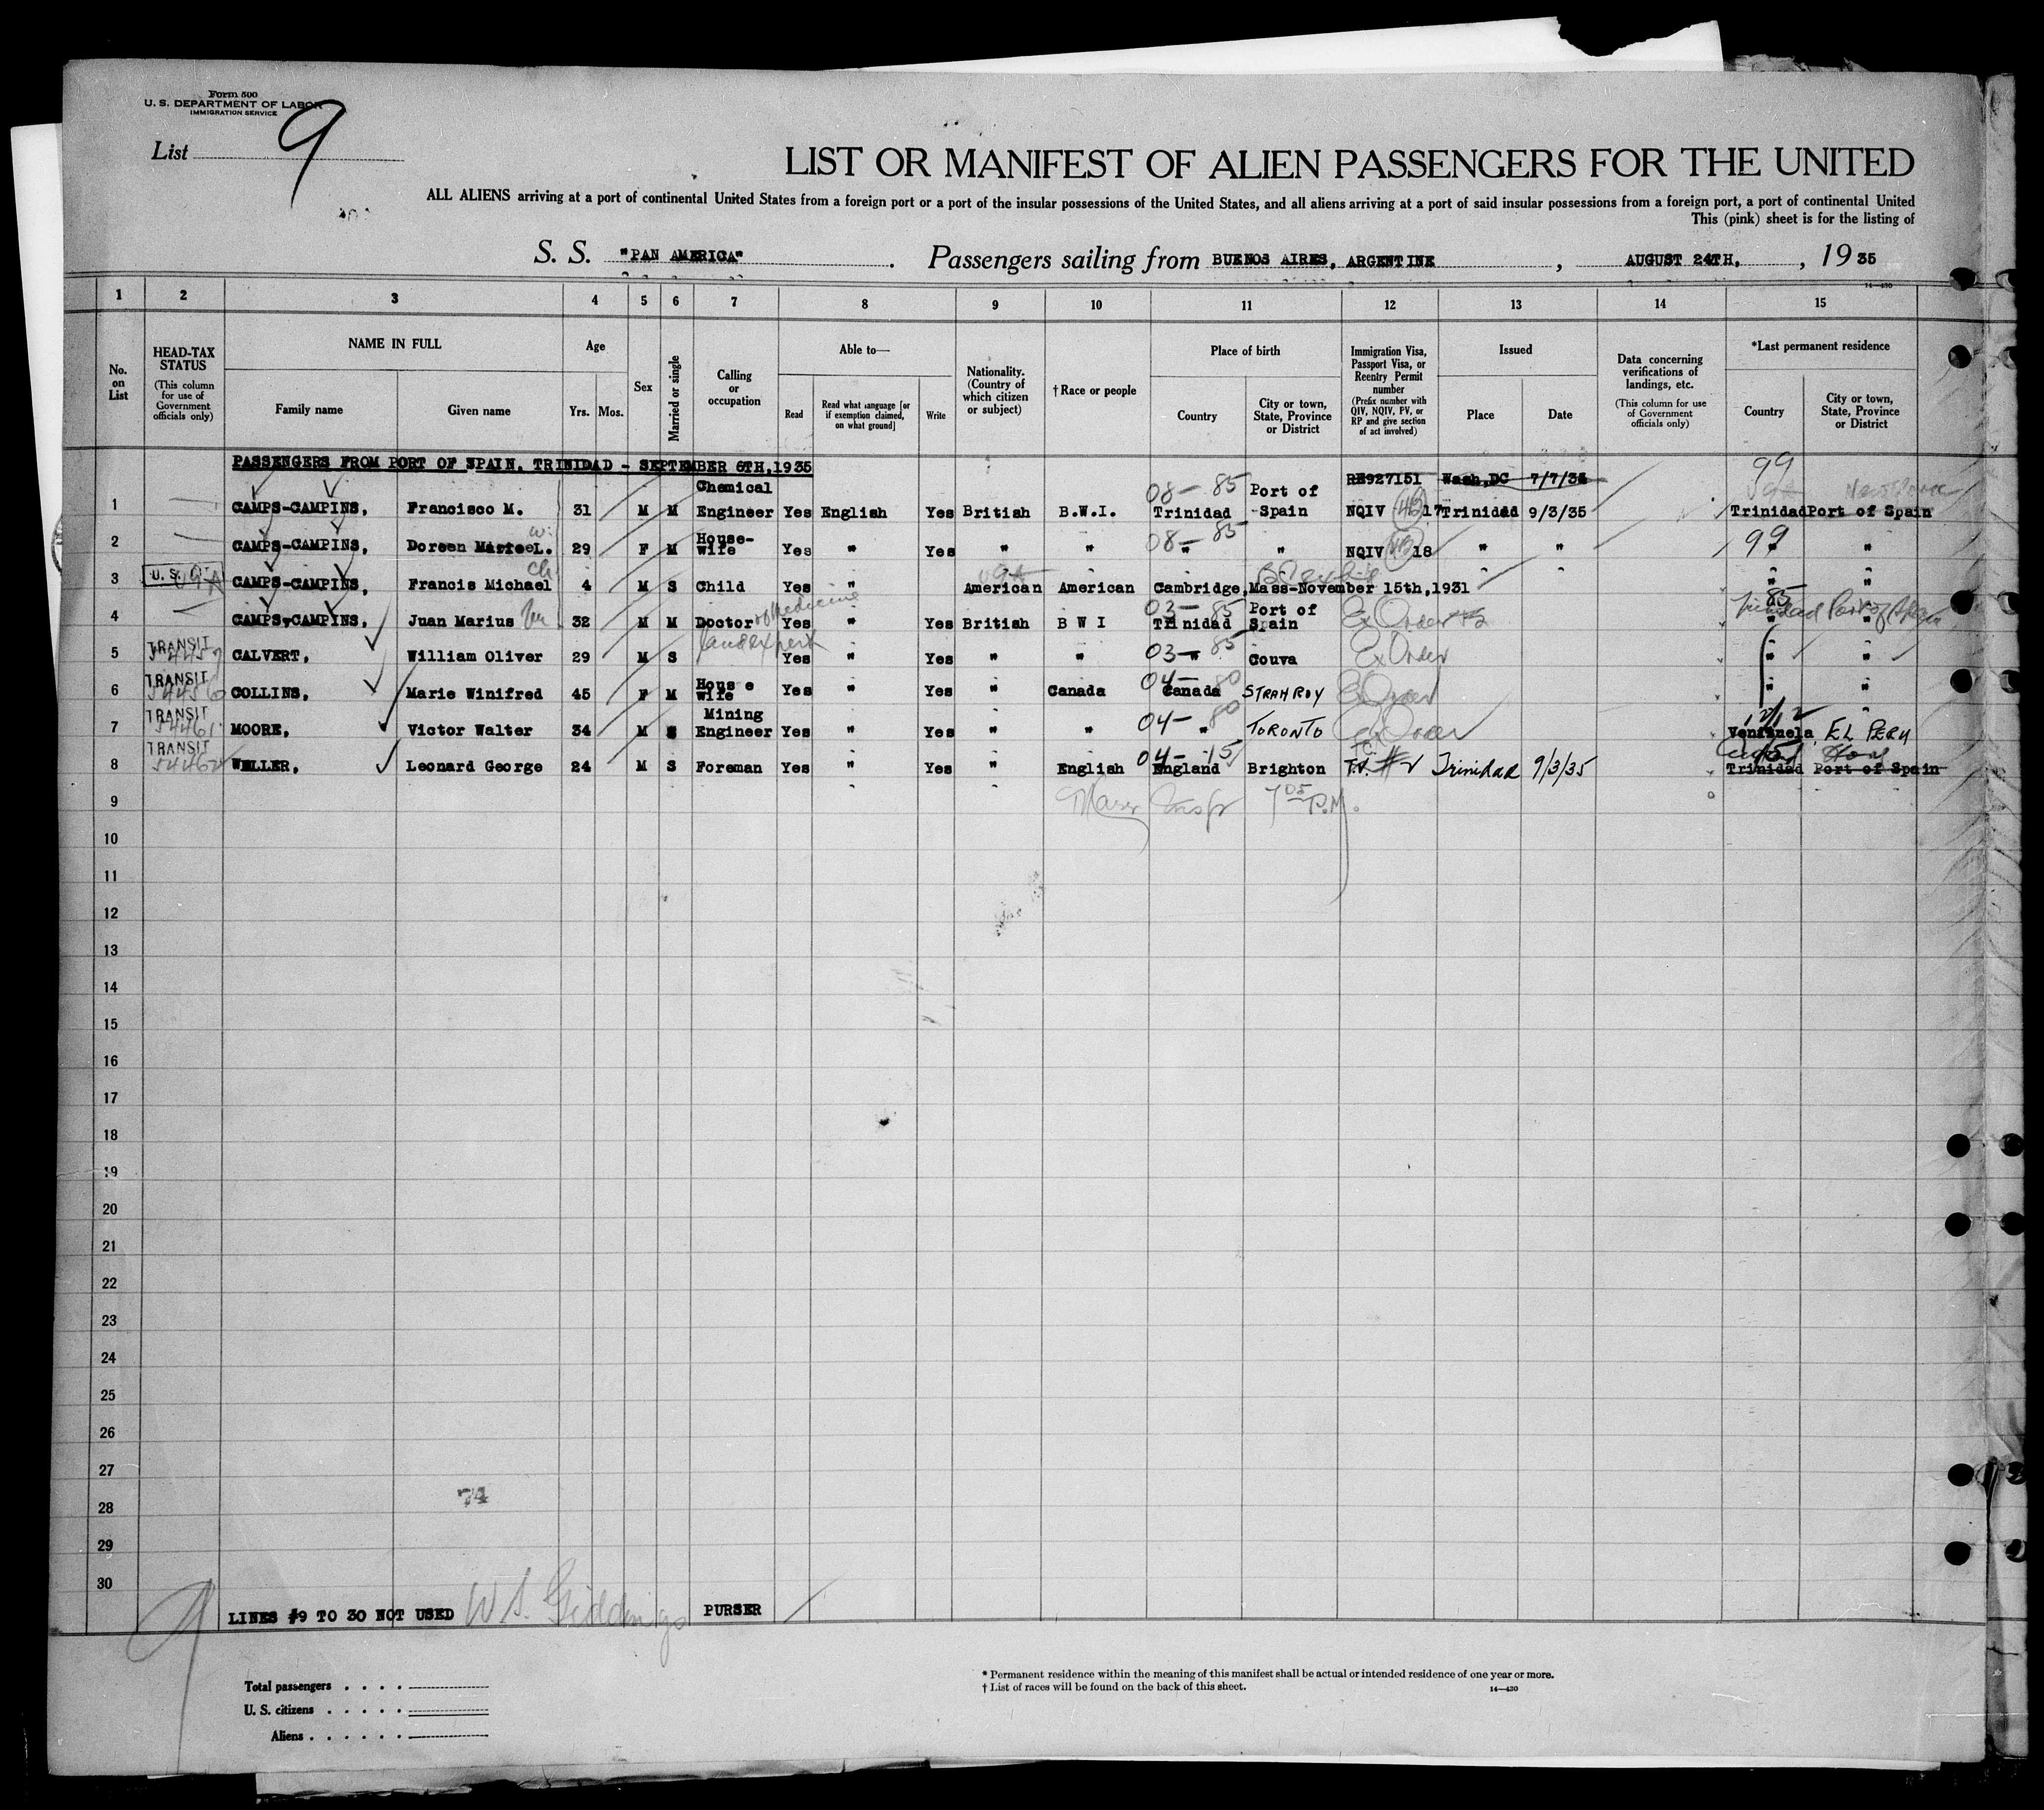 Form 500
U. S. DEPARTMENT OF LABOR
IMMIGRATION SERVICE
List 9
LIST OR MANIFEST OF ALIEN PASSENGERS FOR THE UNITED
ALL ALIENS arriving at a port of continental United States from a foreign port or a port of the insular possessions of the United States, and all aliens arriving at a port of said insular possessions from a foreign port, a port of continental United
This (pink) sheet is for the listing of
S. S. "PAN AMERICA" . Passengers sailing from BUENOS AIRES, ARGENTINE , AUGUST 24TH, , 19 35
14—430
1 2 3 4 5 6 7 8 9 10 11 12 13 14 15
No. on List
HEAD-TAX STATUS (This column for use of Government officials only)
NAME IN FULL
Family name Given name
Age
Yrs. Mos.
Sex
Married or single
Calling or occupation
Able to—
Read Read what language [or if exemption claimed, on what ground] Write
Nationality. (Country of which citizen or subject)
† Race or people
Place of birth
Country City or town, State, Province or District
Immigration Visa, Passport Visa, or Reentry Permit number (Prefix number with QIV, NQIV, PV, or RP and give section of act involved)
Issued
Place Date
Data concerning verifications of landings, etc. (This column for use of Government officials only)
*Last permanent residence
Country City or town, State, Province or District
PASSENGERS FROM PORT OF SPAIN, TRINIDAD - SEPTEMBER 6TH, 1935
RE927151 Wash,DC 99
1 CAMPS-CAMPINS, Francisco M. 31 M M Chemical Engineer Yes English Yes British B.W.I. 08- 85 Trinidad Port of Spain NQIV 4B 17 Trinidad 9/3/35 Trinidad Port of Spain
2 CAMPS-CAMPINS, Doreen L. 29 F M House-wife Yes " Yes " " 08- 85 " " NQIV 4B 18 " " 99 "
3 U. S. CAMPS-CAMPINS, Francis Michael 4 M S Child Yes " American American Cambridge, Mass-November 15th, 1931 " "
4 CAMPS-CAMPINS, Juan Marius 32 M M Doctor of Medicine Yes " Yes British B W I 03- 85 Trinidad Port of Spain Ex Order 85 Trinidad Port of Spain
5 TRANSIT CALVERT, William Oliver 29 M S Yes " Yes " " 03- " 85 Couva Ex Order " "
6 TRANSIT COLLINS, Marie Winifred 45 F M House wife Yes " Yes " Canada 04- 80 Canada STRAHROY Ex Order " "
7 TRANSIT 54461 MOORE, Victor Walter 34 M Mining Engineer Yes " Yes " " 04- 80 " TORONTO Ex Order Venezuela EL PERU
8 TRANSIT 54462 WELLER, Leonard George 24 M S Foreman Yes " Yes " English 04- 15 England Brighton T.V. #2 Trinidad 9/3/35 Trinidad Port of Spain
9
10
11
12
13
14
15
16
17
18
19
20
21
22
23
24
25
26
27
28
74
29
30
LINES #9 TO 30 NOT USED W S. Giddings PURSER
9
Total passengers . . . .
U. S. citizens . . . . .
Aliens . . . . . .
* Permanent residence within the meaning of this manifest shall be actual or intended residence of one year or more.
† List of races will be found on the back of this sheet.
14—430